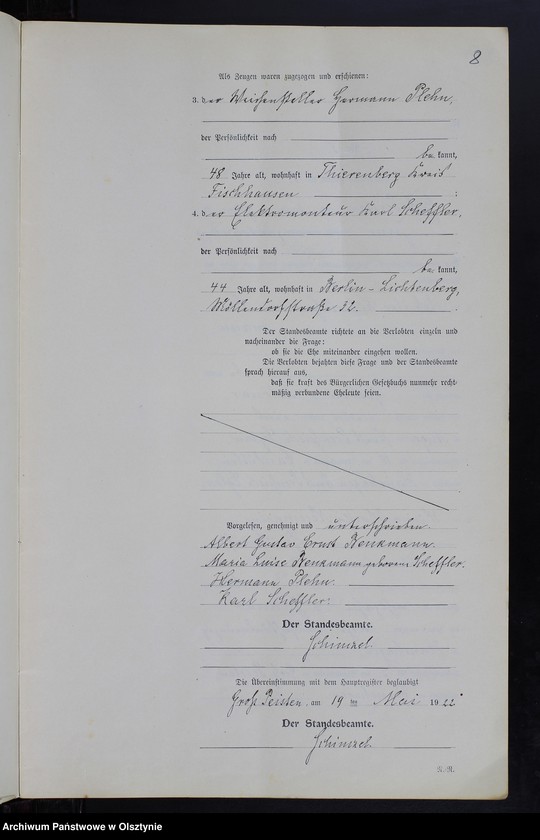 8
Als Zeugen waren zugezogen und erschienen:
3. der Weichensteller Hermann Plehn,
der Persönlichkeit nach
be kannt,
48 Jahre alt, wohnhaft in Thierenberg Kreis
Fischhausen.
4. der Elektromonteur Karl Scheffler,
der Persönlichkeit nach
be kannt,
44 Jahre alt, wohnhaft in Berlin-Lichtenberg,
Möllendorfstraße 32.
Der Standesbeamte richtete an die Verlobten einzeln und
nacheinander die Frage:
ob sie die Ehe miteinander eingehen wollen.
Die Verlobten bejahten diese Frage und der Standesbeamte
sprach hierauf aus,
daß sie kraft des Bürgerlichen Gesetzbuchs nunmehr recht-
mäßig verbundene Eheleute seien.
Vorgelesen, genehmigt und unterschrieben.
Albert Gustav Ernst Kenkmann.
Maria Luise Kenkmann geborene Scheffler.
Hermann Plehn.
Karl Scheffler.
Der Standesbeamte.
Schinzel
Die Übereinstimmung mit dem Hauptregister beglaubigt
Groß Peisten, am 19 ten Mai 1922
Der Standesbeamte.
Schinzel
K.-N.
Archiwum Państwowe w Olsztynie